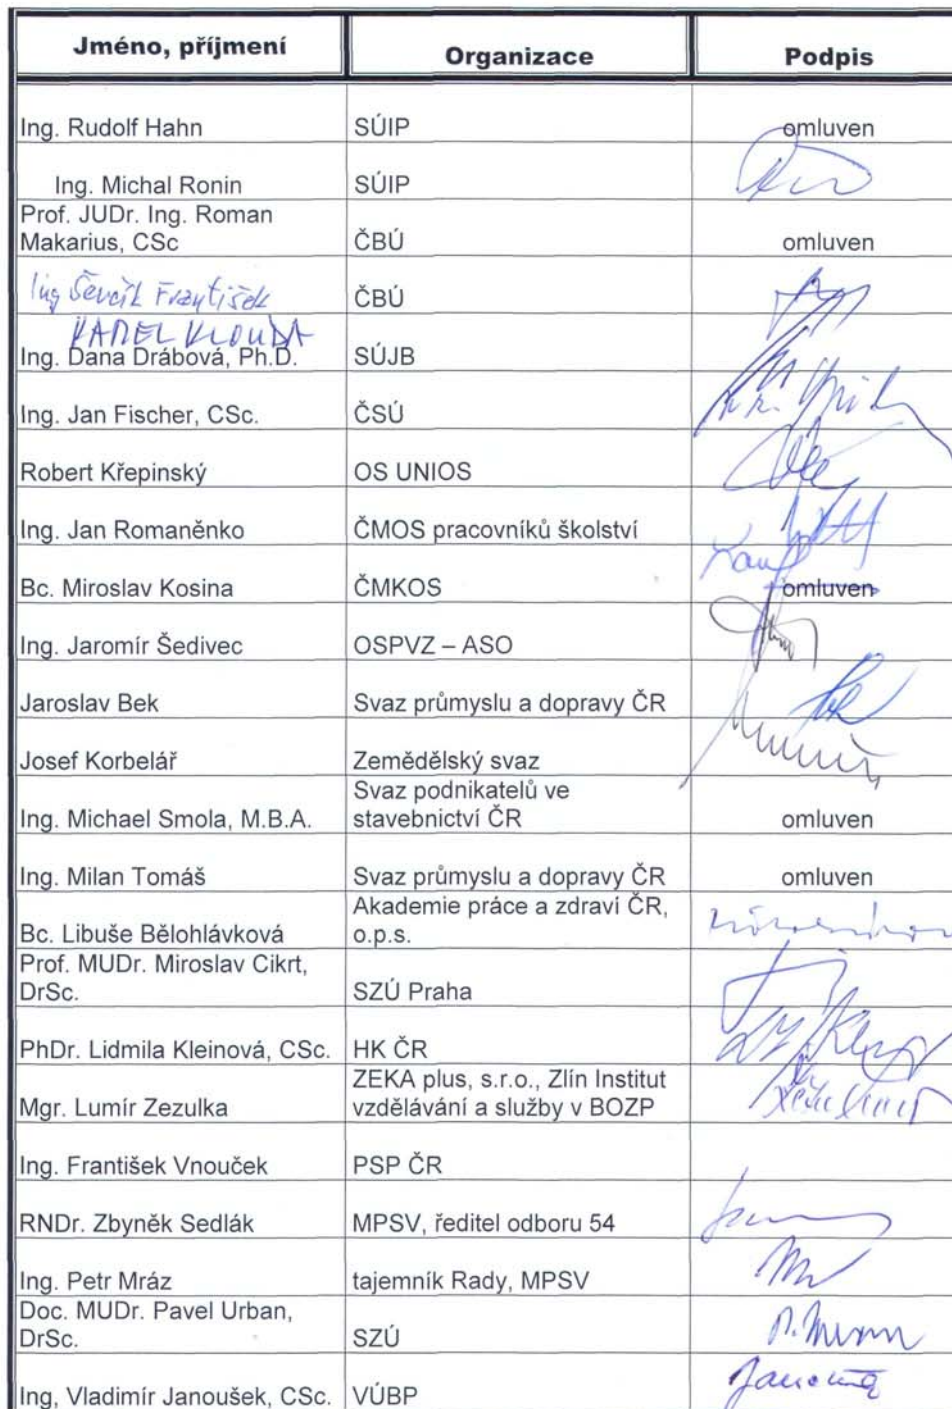 Jméno, příjmení Organizace Podpis
Ing. Rudolf Hahn SÚIP omluven
Ing. Michal Ronin SÚIP
Prof. JUDr. Ing. Roman
Makarius, CSc ČBÚ omluven
Ing Ševčík František ČBÚ
KAREL KLOUDA
Ing. Dana Drábová, Ph.D. SÚJB
Ing. Jan Fischer, CSc. ČSÚ
Robert Křepinský OS UNIOS
Ing. Jan Romaněnko ČMOS pracovníků školství
Bc. Miroslav Kosina ČMKOS omluven
Ing. Jaromír Šedivec OSPVZ – ASO
Jaroslav Bek Svaz průmyslu a dopravy ČR
Josef Korbelář Zemědělský svaz
Svaz podnikatelů ve
Ing. Michael Smola, M.B.A. stavebnictví ČR omluven
Ing. Milan Tomáš Svaz průmyslu a dopravy ČR omluven
Akademie práce a zdraví ČR,
Bc. Libuše Bělohlávková o.p.s.
Prof. MUDr. Miroslav Cikrt,
DrSc. SZÚ Praha
PhDr. Lidmila Kleinová, CSc. HK ČR
ZEKA plus, s.r.o., Zlín Institut
Mgr. Lumír Zezulka vzdělávání a služby v BOZP
Ing. František Vnouček PSP ČR
RNDr. Zbyněk Sedlák MPSV, ředitel odboru 54
Ing. Petr Mráz tajemník Rady, MPSV
Doc. MUDr. Pavel Urban,
DrSc. SZÚ
Ing, Vladimír Janoušek, CSc. VÚBP